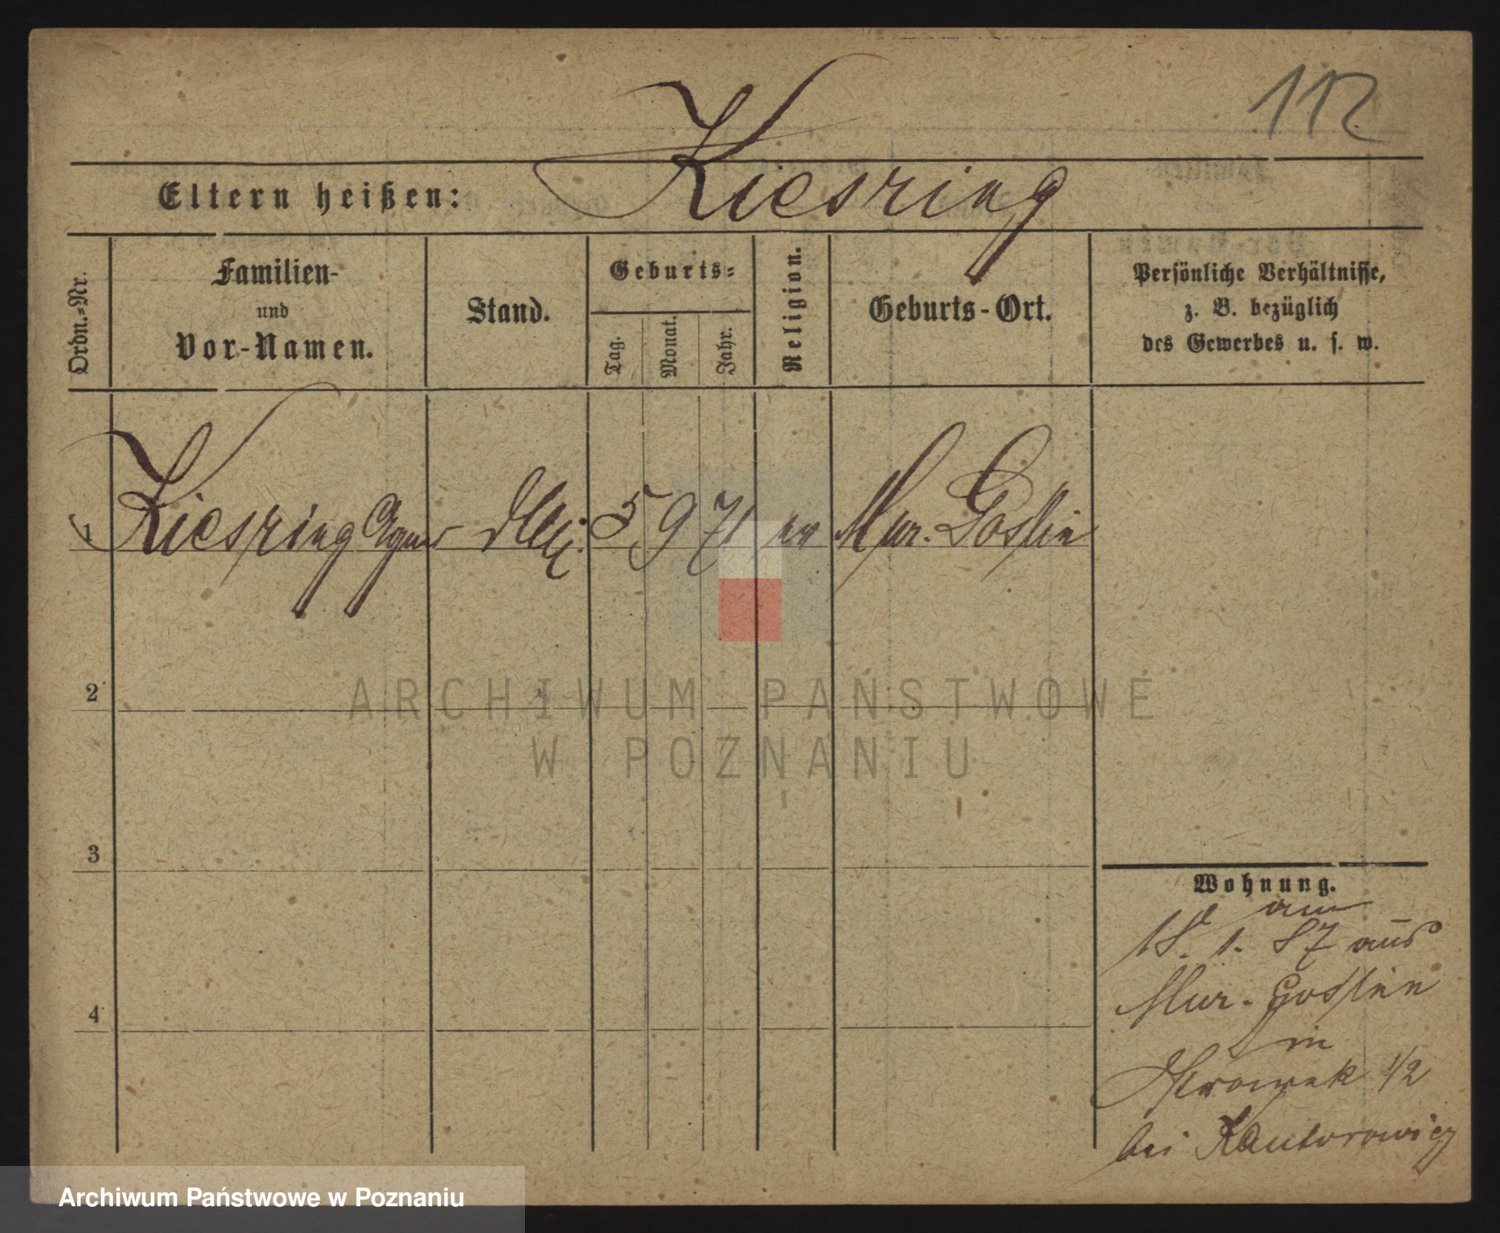 112
Kiesring
Eltern heißen:
Ordn.-Nr.
Familien-
und
Vor-Namen.
Stand.
Geburts-
Tag.
Monat.
Jahr.
Religion.
Geburts-Ort.
Persönliche Verhältnisse,
z. B. bezüglich
des Gewerbes u. s. w.
1 Kiesring Agnes 5 9 71 ev Mur. Goslin
2
ARCHIWUM PAŃSTWOWE
W POZNANIU
3
4
Wohnung.
am
18. 1. 87 aus
Mur-Goslin
in
1/2
bei Kantorowicz
Archiwum Państwowe w Poznaniu